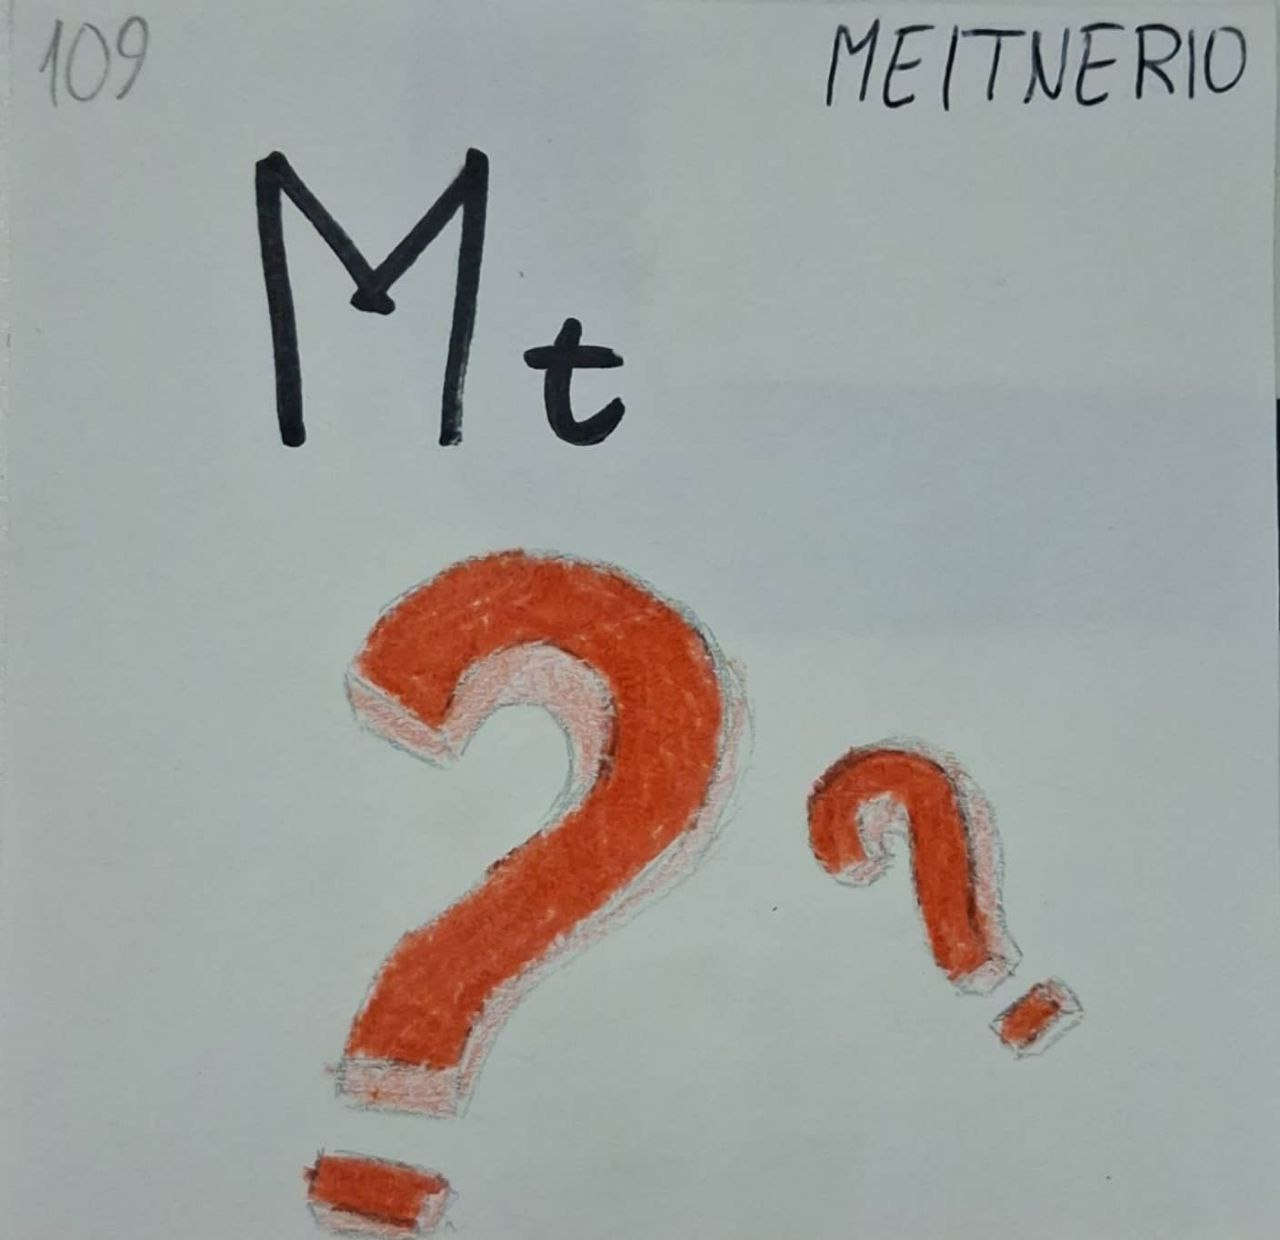 109 MEITNERIO
Mt
? ?